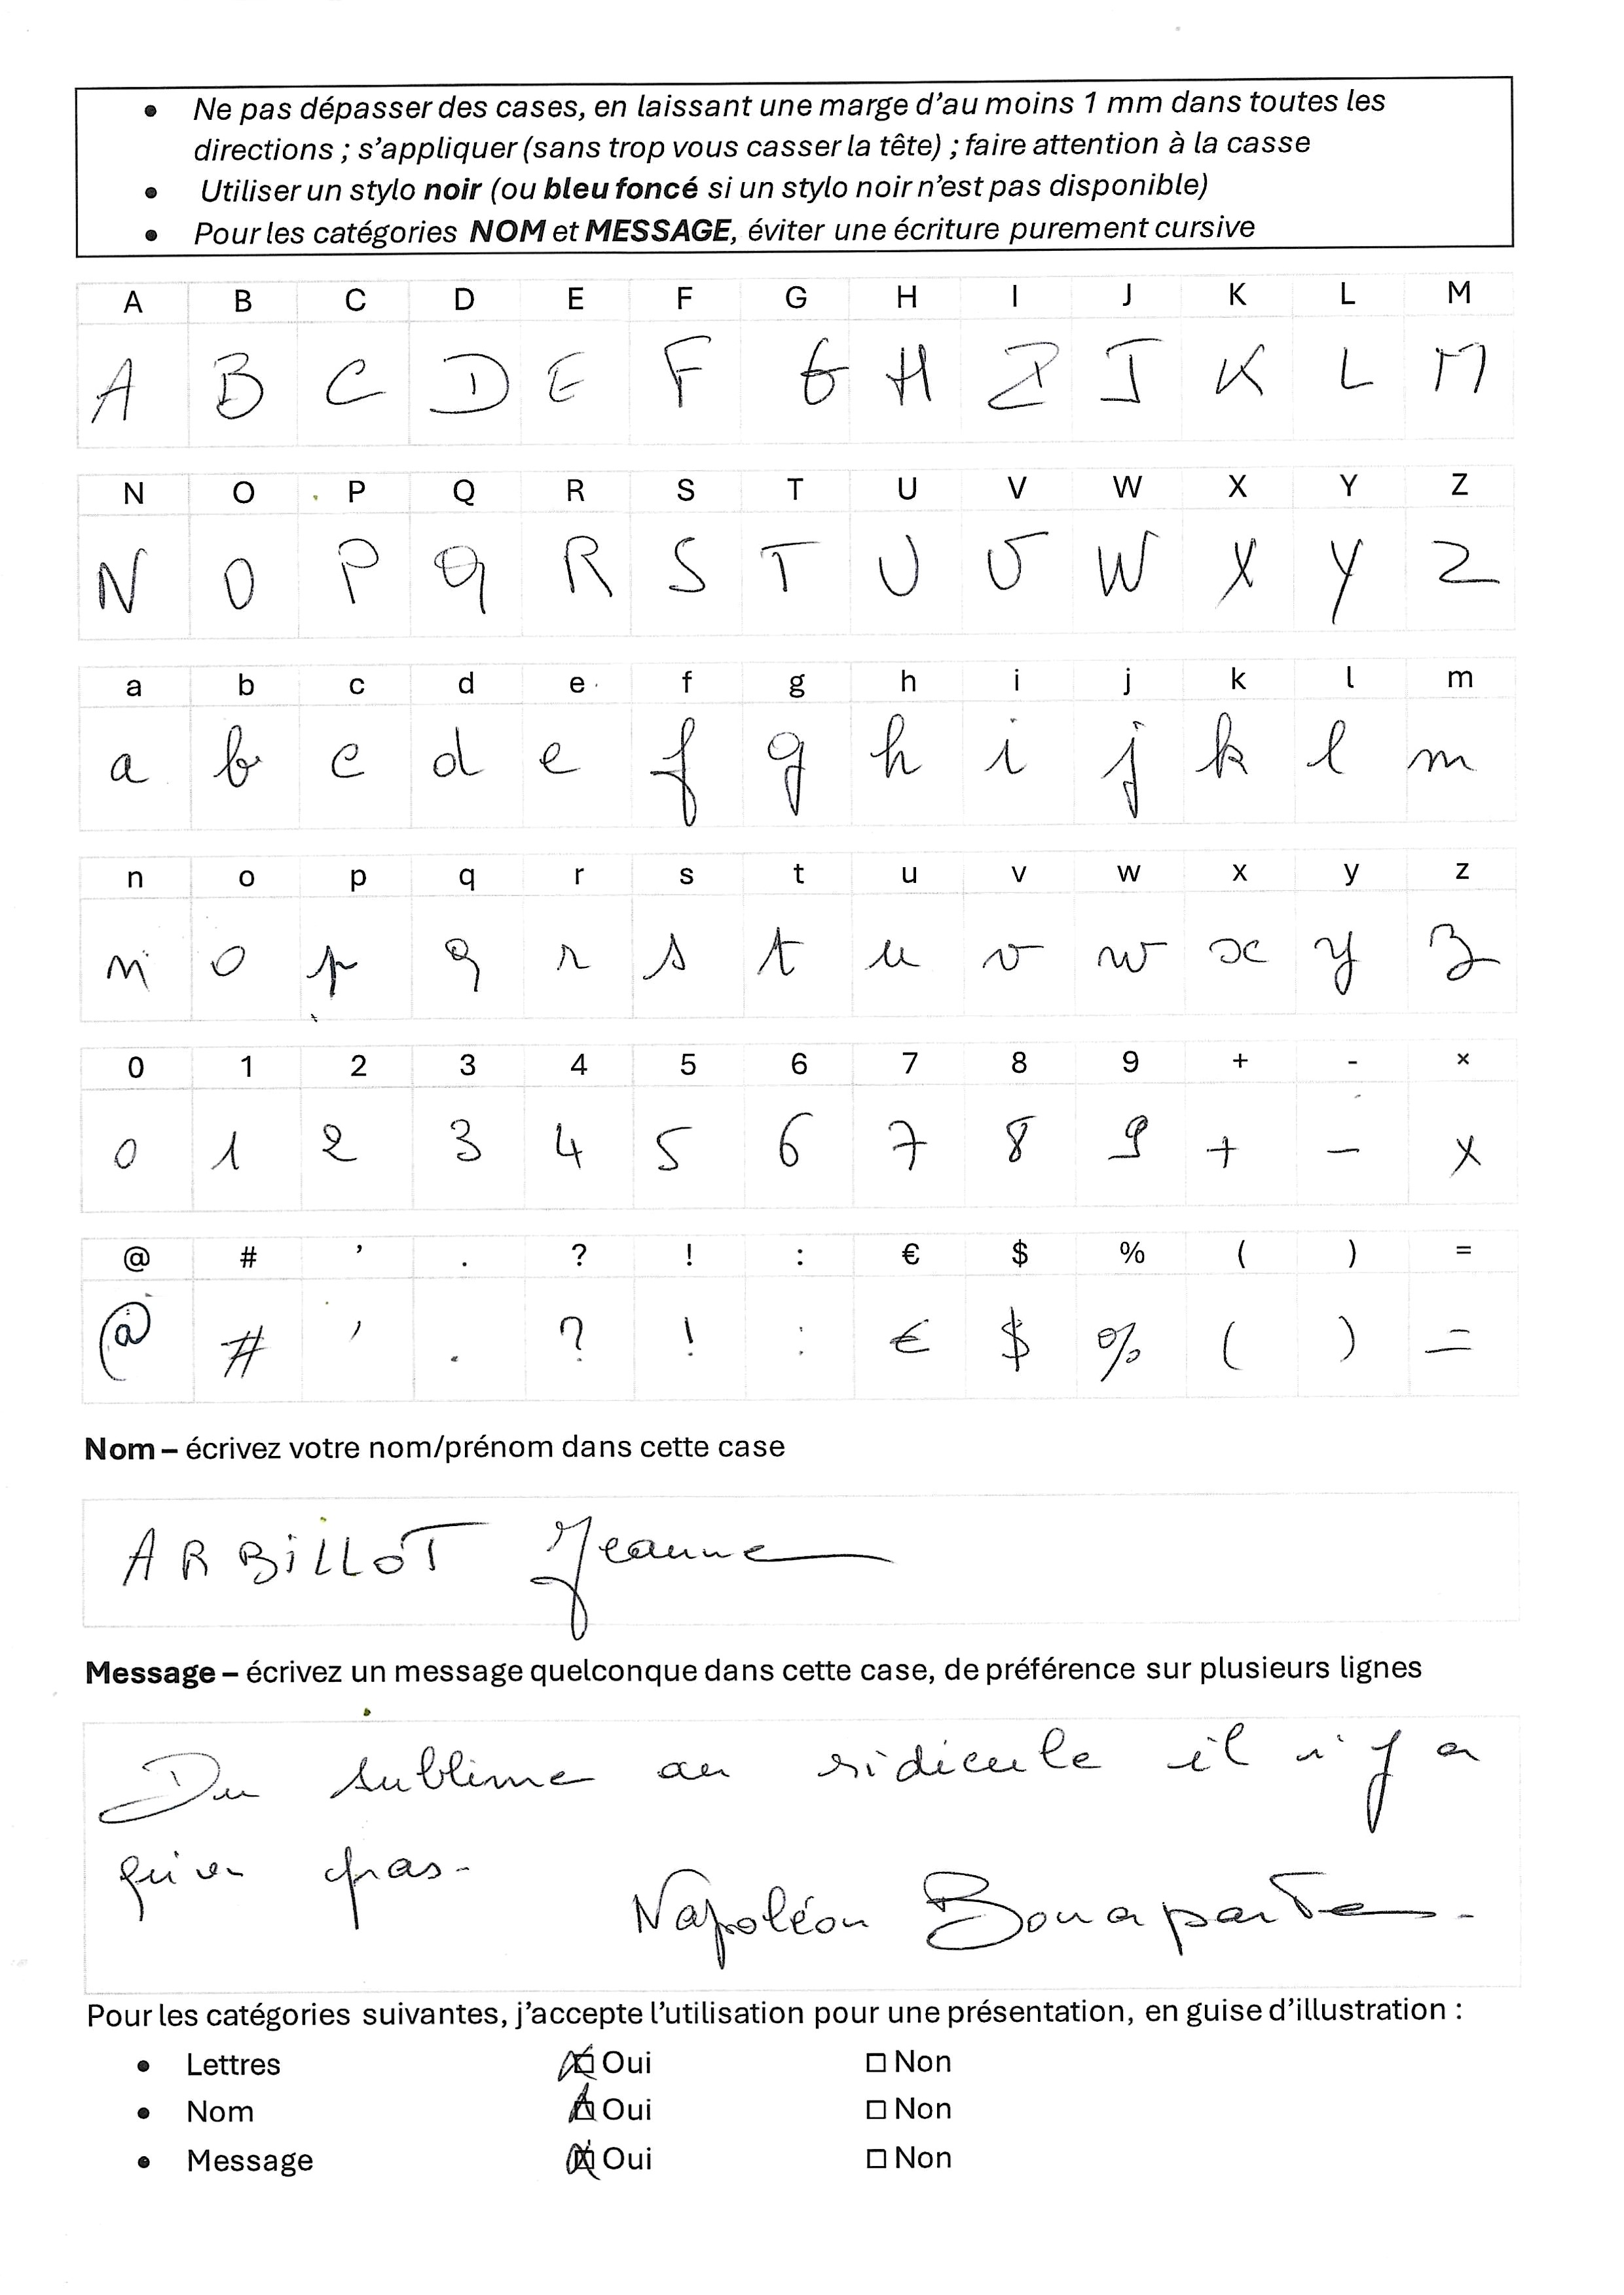 • Ne pas dépasser des cases, en laissant une marge d’au moins 1 mm dans toutes les
directions ; s’appliquer (sans trop vous casser la tête) ; faire attention à la casse
• Utiliser un stylo noir (ou bleu foncé si un stylo noir n’est pas disponible)
• Pour les catégories NOM et MESSAGE, éviter une écriture purement cursive
A B C D E F G H I J K L M
A B C D E F G H I J K L M
N O P Q R S T U V W X Y Z
N O P Q R S T U V W X Y Z
a b c d e f g h i j k l m
a b c d e f g h i j k l m
n o p q r s t u v w x y z
n o p q r s t u v w x y z
0 1 2 3 4 5 6 7 8 9 + - ×
0 1 2 3 4 5 6 7 8 9 + - ×
@ # ’ . ? ! : € $ % ( ) =
@ # ’ . ? ! : € $ % ( ) =
Nom – écrivez votre nom/prénom dans cette case
ARBiLLOT Jeanne
Message – écrivez un message quelconque dans cette case, de préférence sur plusieurs lignes
Du sublime au ridicule il n'y a
qu'un pas.
Napoléon Bonaparte.
Pour les catégories suivantes, j’accepte l’utilisation pour une présentation, en guise d’illustration :
• Lettres ☒ Oui ☐ Non
• Nom ☒ Oui ☐ Non
• Message ☒ Oui ☐ Non